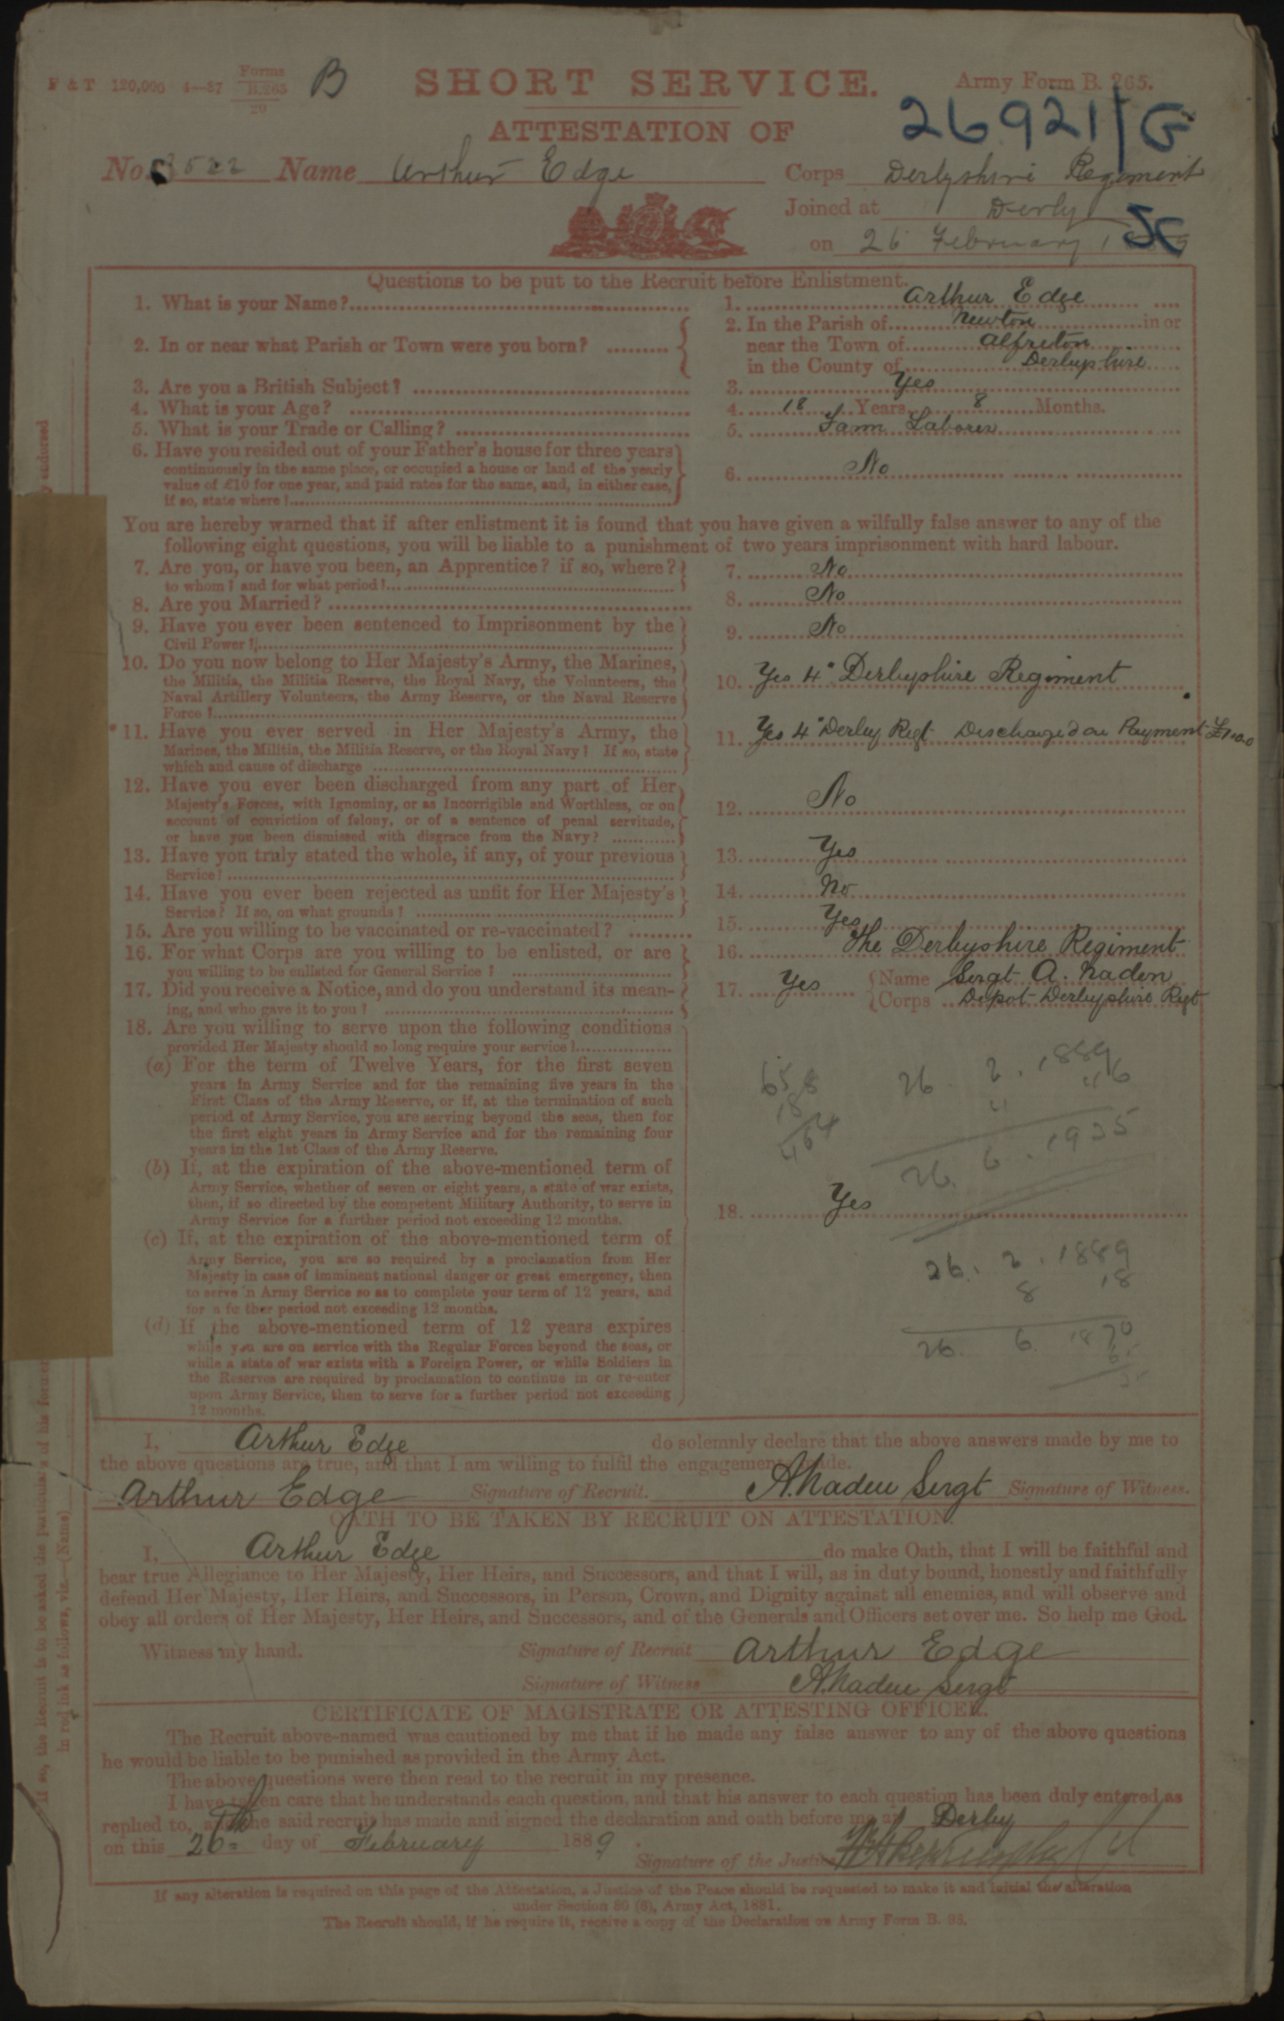 F & T 120,000 4—87 Forms B.265 29 B
SHORT SERVICE.
Army Form B. 265.
26921/G
ATTESTATION OF
No. 3522 Name Arthur Edge Corps Derbyshire Regiment
Joined at Derby
on 26 February
Questions to be put to the Recruit before Enlistment.
1. What is your Name? 1. Arthur Edge
2. In or near what Parish or Town were you born? 2. In the Parish of Newton in or
near the Town of Alfreton
in the County of Derbyshire
3. Are you a British Subject? 3. Yes
4. What is your Age? 4. 18 Years 8 Months.
5. What is your Trade or Calling? 5. Farm Laborer
6. Have you resided out of your Father's house for three years
continuously in the same place, or occupied a house or land of the yearly
value of £10 for one year, and paid rates for the same, and, in either case,
if so, state where? 6. No
You are hereby warned that if after enlistment it is found that you have given a wilfully false answer to any of the
following eight questions, you will be liable to a punishment of two years imprisonment with hard labour.
7. Are you, or have you been, an Apprentice? if so, where?
to whom? and for what period? 7. No
8. Are you Married? 8. No
9. Have you ever been sentenced to Imprisonment by the
Civil Power? 9. No
10. Do you now belong to Her Majesty's Army, the Marines,
the Militia, the Militia Reserve, the Royal Navy, the Volunteers, the
Naval Artillery Volunteers, the Army Reserve, or the Naval Reserve
Force? 10. Yes 4" Derbyshire Regiment
*11. Have you ever served in Her Majesty's Army, the
Marines, the Militia, the Militia Reserve, or the Royal Navy? If so, state
which and cause of discharge 11. Yes 4" Derby Regt Discharged on Payment
12. Have you ever been discharged from any part of Her
Majesty's Forces, with Ignominy, or as Incorrigible and Worthless, or on
account of conviction of felony, or of a sentence of penal servitude,
or have you been dismissed with disgrace from the Navy? 12. No
13. Have you truly stated the whole, if any, of your previous
Service? 13. Yes
14. Have you ever been rejected as unfit for Her Majesty's
Service? If so, on what grounds? 14. No
15. Are you willing to be vaccinated or re-vaccinated? 15. Yes
16. For what Corps are you willing to be enlisted, or are
you willing to be enlisted for General Service? 16. The Derbyshire Regiment
17. Did you receive a Notice, and do you understand its mean-
ing, and who gave it to you? 17. Yes Name Sergt A. Naden
Corps Depot Derbyshire Regt
18. Are you willing to serve upon the following conditions
provided Her Majesty should so long require your service?
(a) For the term of Twelve Years, for the first seven
years in Army Service and for the remaining five years in the
First Class of the Army Reserve, or if, at the termination of such
period of Army Service, you are serving beyond the seas, then for
the first eight years in Army Service and for the remaining four
years in the 1st Class of the Army Reserve.
(b) If, at the expiration of the above-mentioned term of
Army Service, whether of seven or eight years, a state of war exists,
then, if so directed by the competent Military Authority, to serve in
Army Service for a further period not exceeding 12 months.
(c) If, at the expiration of the above-mentioned term of
Army Service, you are so required by a proclamation from Her
Majesty in case of imminent national danger or great emergency, then
to serve in Army Service so as to complete your term of 12 years, and
for a further period not exceeding 12 months.
(d) If the above-mentioned term of 12 years expires
while you are on service with the Regular Forces beyond the seas, or
while a state of war exists with a Foreign Power, or while Soldiers in
the Reserves are required by proclamation to continue in or re-enter
upon Army Service, then to serve for a further period not exceeding
12 months.
18. Yes
26 2 . 1889
4 46
26 . 6 . 1935
26 . 2 . 1889
8 18
26 . 6 . 1870
I, Arthur Edge do solemnly declare that the above answers made by me to
the above questions are true, and that I am willing to fulfil the engagements made.
Arthur Edge Signature of Recruit. A. Naden Sergt Signature of Witness.
OATH TO BE TAKEN BY RECRUIT ON ATTESTATION.
I, Arthur Edge do make Oath, that I will be faithful and
bear true Allegiance to Her Majesty, Her Heirs, and Successors, and that I will, as in duty bound, honestly and faithfully
defend Her Majesty, Her Heirs, and Successors, in Person, Crown, and Dignity against all enemies, and will observe and
obey all orders of Her Majesty, Her Heirs, and Successors, and of the Generals and Officers set over me. So help me God.
Witness my hand. Signature of Recruit Arthur Edge
Signature of Witness A. Naden Sergt
CERTIFICATE OF MAGISTRATE OR ATTESTING OFFICER.
The Recruit above-named was cautioned by me that if he made any false answer to any of the above questions
he would be liable to be punished as provided in the Army Act.
The above questions were then read to the recruit in my presence.
I have taken care that he understands each question, and that his answer to each question has been duly entered as
replied to, and the said recruit has made and signed the declaration and oath before me at Derby
on this 26th day of February 1889.
Signature of the Justice
If any alteration is required on this page of the Attestation, a Justice of the Peace should be requested to make it and initial the alteration
under Section 80 (6), Army Act, 1881.
The Recruit should, if he require it, receive a copy of the Declaration on Army Form B. 98.
* If so, the Recruit is to be asked the particulars of his former
in red ink as follows, viz.—(Name)